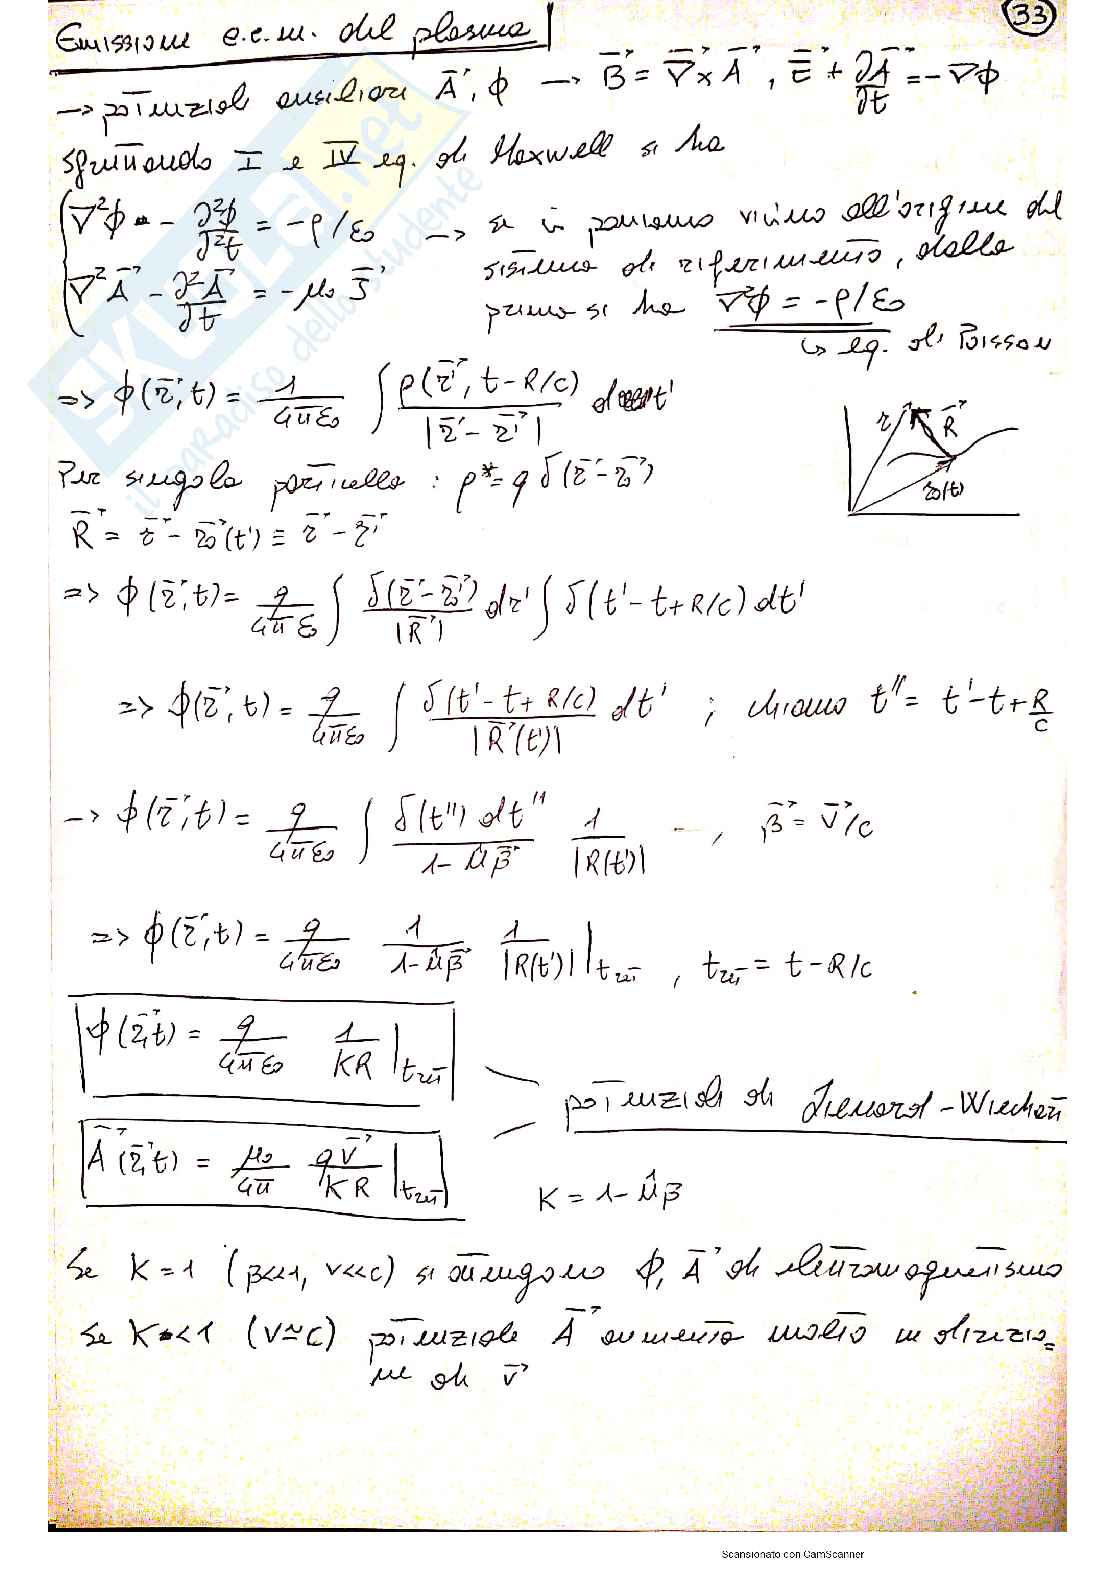 33
Emissione e.e.m. del plasma
→ potenziali ausiliari A⃗, ϕ → B⃗ = ∇⃗ × A⃗, E⃗ + ∂A⃗/∂t = -∇ϕ
sfruttando I e IV eq. di Maxwell si ha
∇²ϕ - ∂²ϕ/∂²t = -ρ/ε₀ → se ci poniamo vicino all'origine del
sistema di riferimento, dalla
∇²A⃗ - ∂²A⃗/∂t = -μ₀ J⃗
prima si ha ∇²ϕ = -ρ/ε₀
↳ eq. di Poisson
=> ϕ(r⃗,t) = 1/4πε₀ ∫ ρ(r⃗', t-R/c)/|r⃗ - r⃗'| dr'
r R⃗
r₀(t)
Per singola particella : ρ* = q δ(r⃗ - r⃗₀)
R⃗ = r⃗ - r⃗₀(t') ≡ r⃗ - r⃗'
=> ϕ(r⃗,t) = q/4πε₀ ∫ δ(r⃗' - r⃗₀')/|R⃗| dr' ∫ δ(t' - t + R/c) dt'
=> ϕ(r⃗,t) = q/4πε₀ ∫ δ(t' - t + R/c)/|R⃗(t')| dt' ; chiamo t'' = t' - t + R/c
→ ϕ(r⃗,t) = q/4πε₀ ∫ δ(t'') dt''/1 - û β⃗ 1/|R(t')| , β⃗ = v⃗/c
=> ϕ(r⃗,t) = q/4πε₀ 1/1 - û β⃗ 1/|R(t')| |t_rit , t_rit = t - R/c
ϕ(r⃗,t) = q/4πε₀ 1/KR |t_rit
potenziali di Lienard - Wiechert
A⃗(r⃗,t) = μ₀/4π qv⃗/KR |t_rit
K = 1 - û β
Se K = 1 (β<<1, v<<c) si ottengono ϕ, A⃗ di elettromagnetismo
Se K << 1 (v≃c) potenziale A⃗ aumenta molto in direzio=
ne di v⃗
SKUOLA.net
il paradiso dello studente
Scansionato con CamScanner